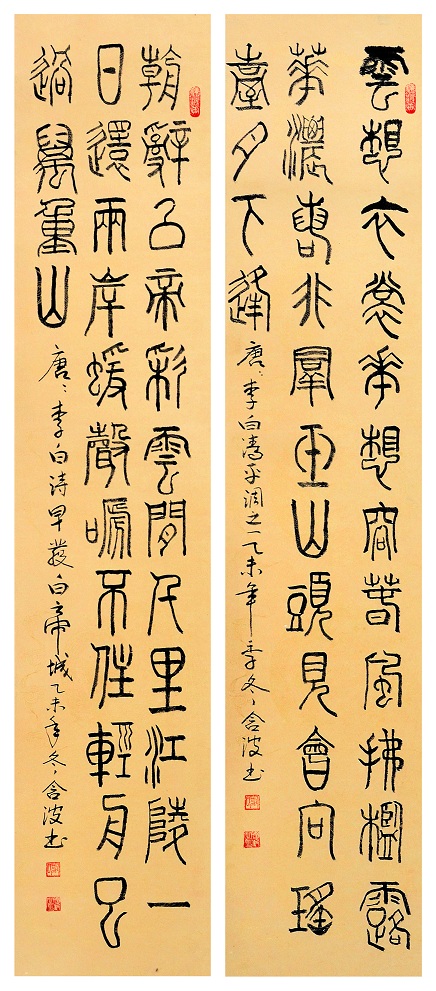 雲想衣裳華想容春風拂檻露
華濃若非羣玉山頭見會向瑤
臺月下逢
唐、李白清平調之一乙未年季冬、含波书
朝辭白帝彩雲間千里江陵一
日還兩岸蝯聲嗁不住輕舟已
過萬重山
唐、李白诗早發白帝城乙未年冬、含波书